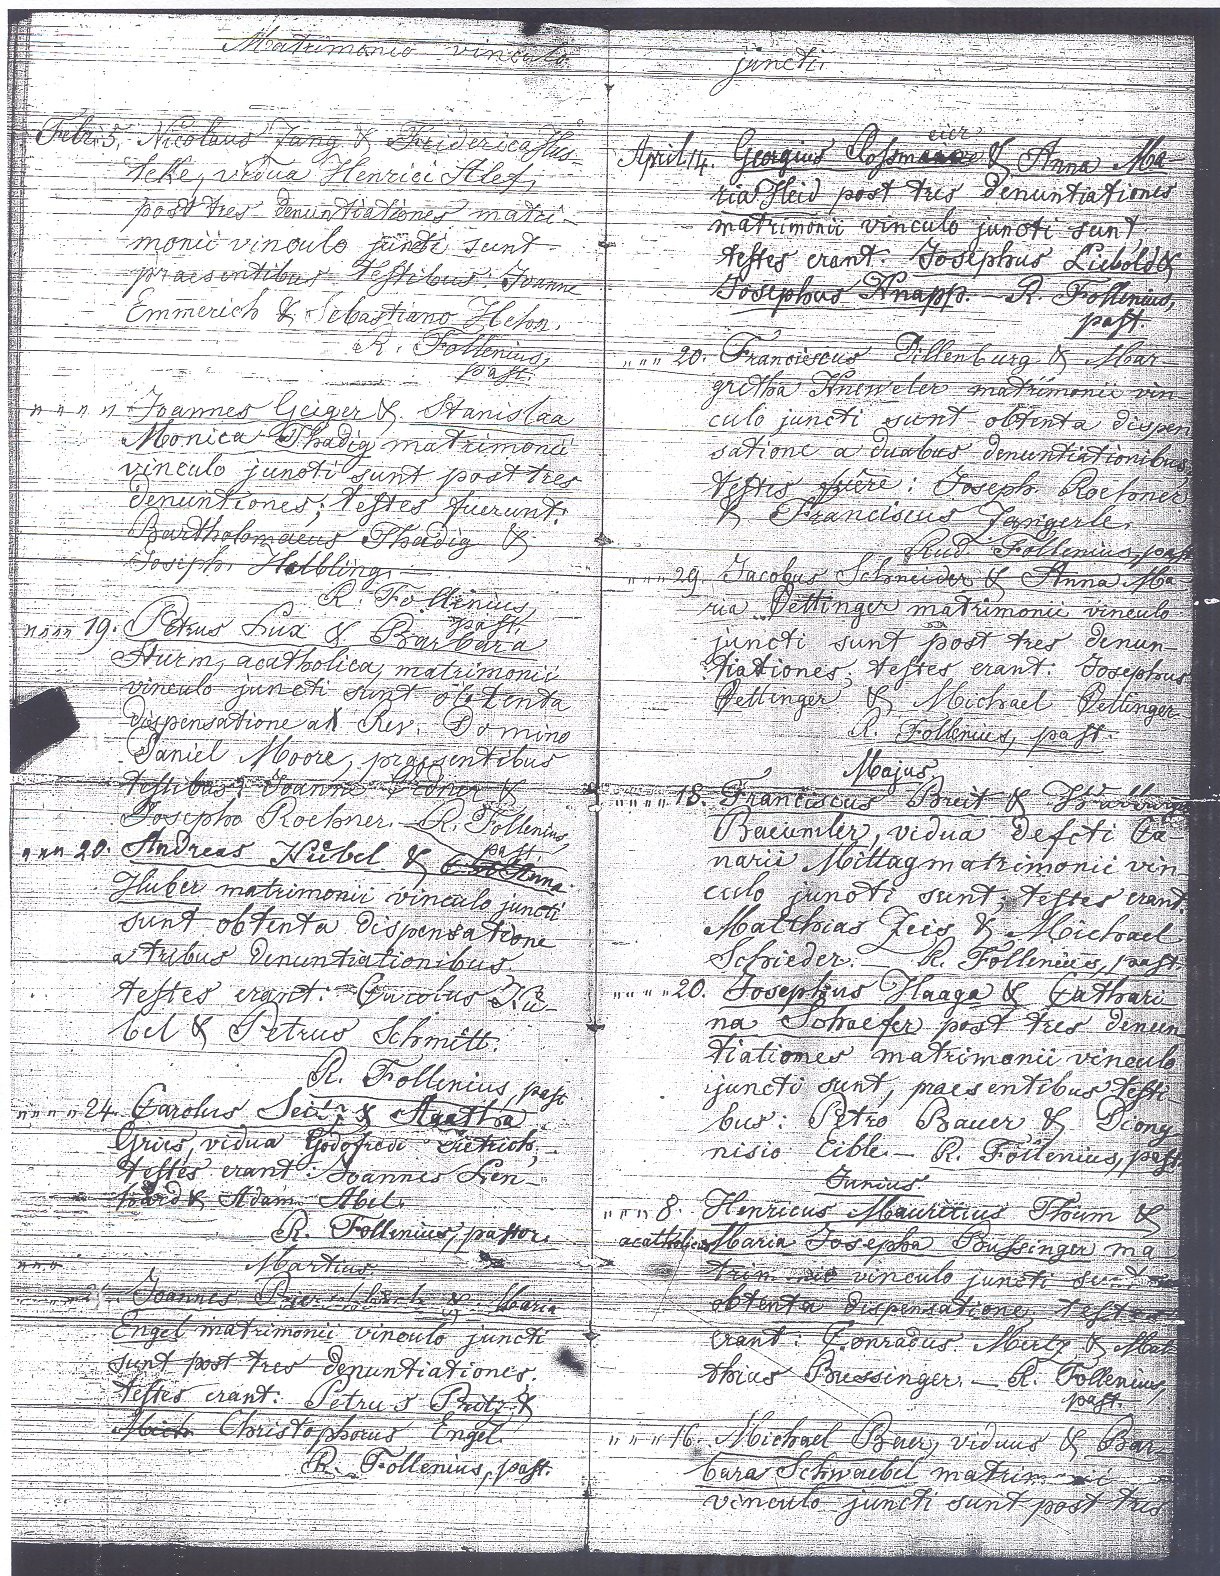 Matrimonio vinculo
Febr. 5. Nicolaus Jang & Friderica Hus-
teke, vidua Henrici Alef,
post tres denuntiationes matri-
monii vinculo juncti sunt
praesentibus testibus: Joanne
Emmerich & Sebastiano Hehn.
R. Follenius,
past.
" " " " Joannes Geiger & Stanislaa
Monica Thadig matrimonii
vinculo juncti sunt post tres
denuntiones; testes fuerunt:
Bartholomaeus Thadig &
Joseph. Helbling.
R. Follenius,
past.
" " " " 19. Petrus Lux & Barbara
Sturm, acatholica, matrimonii
vinculo juncti sunt obtenta
dispensatione a Rev. Domino
Daniel Moore, praesentibus
testibus: Joanne &
Josepho Roehner. – R. Follenius,
past.
" " " 20. Andreas Kübel & Anna
Huber matrimonii vinculo juncti
sunt obtenta dispensatione
a tribus denuntiationibus.
testes erant: Jacobus Kü-
bel & Petrus Schmitt.
R. Follenius, past.
" " " " 24. Carolus & Agatha
Gries, vidua Godofredi Dietrich,
testes erant: Joannes Len-
hard & Adam Abel.
R. Follenius, pastor.
Martius
Joannes & Maria
Engel matrimonii vinculo juncti
sunt post tres denuntiationes.
testes erant: Petrus Pritz &
Mich. Christophorus Engel.
R. Follenius, past.
juncti.
April 14. Georgius Clossmeier & Anna Ma-
ria Heid post tres denuntiationes
matrimonii vinculo juncti sunt
testes erant: Josephus Liebold &
Josephus Knapp. – R. Follenius,
past.
" " " 20. Franciscus Dillenburg & Mar-
gretha Kneweler matrimonii vin-
culo juncti sunt obtenta dispen
satione a duabus denuntiationibus,
testes fuere: Joseph. Roehner
& Franciscus Zangerle.
Rud. Follenius, past
" " " 29. Jacobus Schneider & Anna Ma-
ria Dettinger matrimonii vinculo
juncti sunt post tres denun-
tiationes; testes erant: Josephus
Dettinger & Michael Dettinger
R. Follenius, past.
Majus
" " " " 18. Franciscus Breit & Walburga
Baeumler, vidua defcti Ca-
narii Mittag matrimonii vin-
culo juncti sunt; testes erant:
Matthias Zeis & Michael
Schieder. – R. Follenius, past.
" " " " 20. Josephus Haaga & Cathari
na Schaefer post tres denun
tiationes matrimonii vinculo
juncti sunt, praesentibus testi-
bus: Petro Bauer & Diony
nisio Eible. – R. Follenius, past
Junius
" " " 8. Henricus Mauritius Thum &
acatholicus Maria Josepha Bussinger ma
trimonii vinculo juncti sunt
obtenta dispensatione, testes
erant: Conradus Mertz & Mat
thias Bussinger. – R. Follenius,
past.
" " " " 16. Michael Beer, viduus & Bar-
bara Schwaebel matrimonii
vinculo juncti sunt post tres